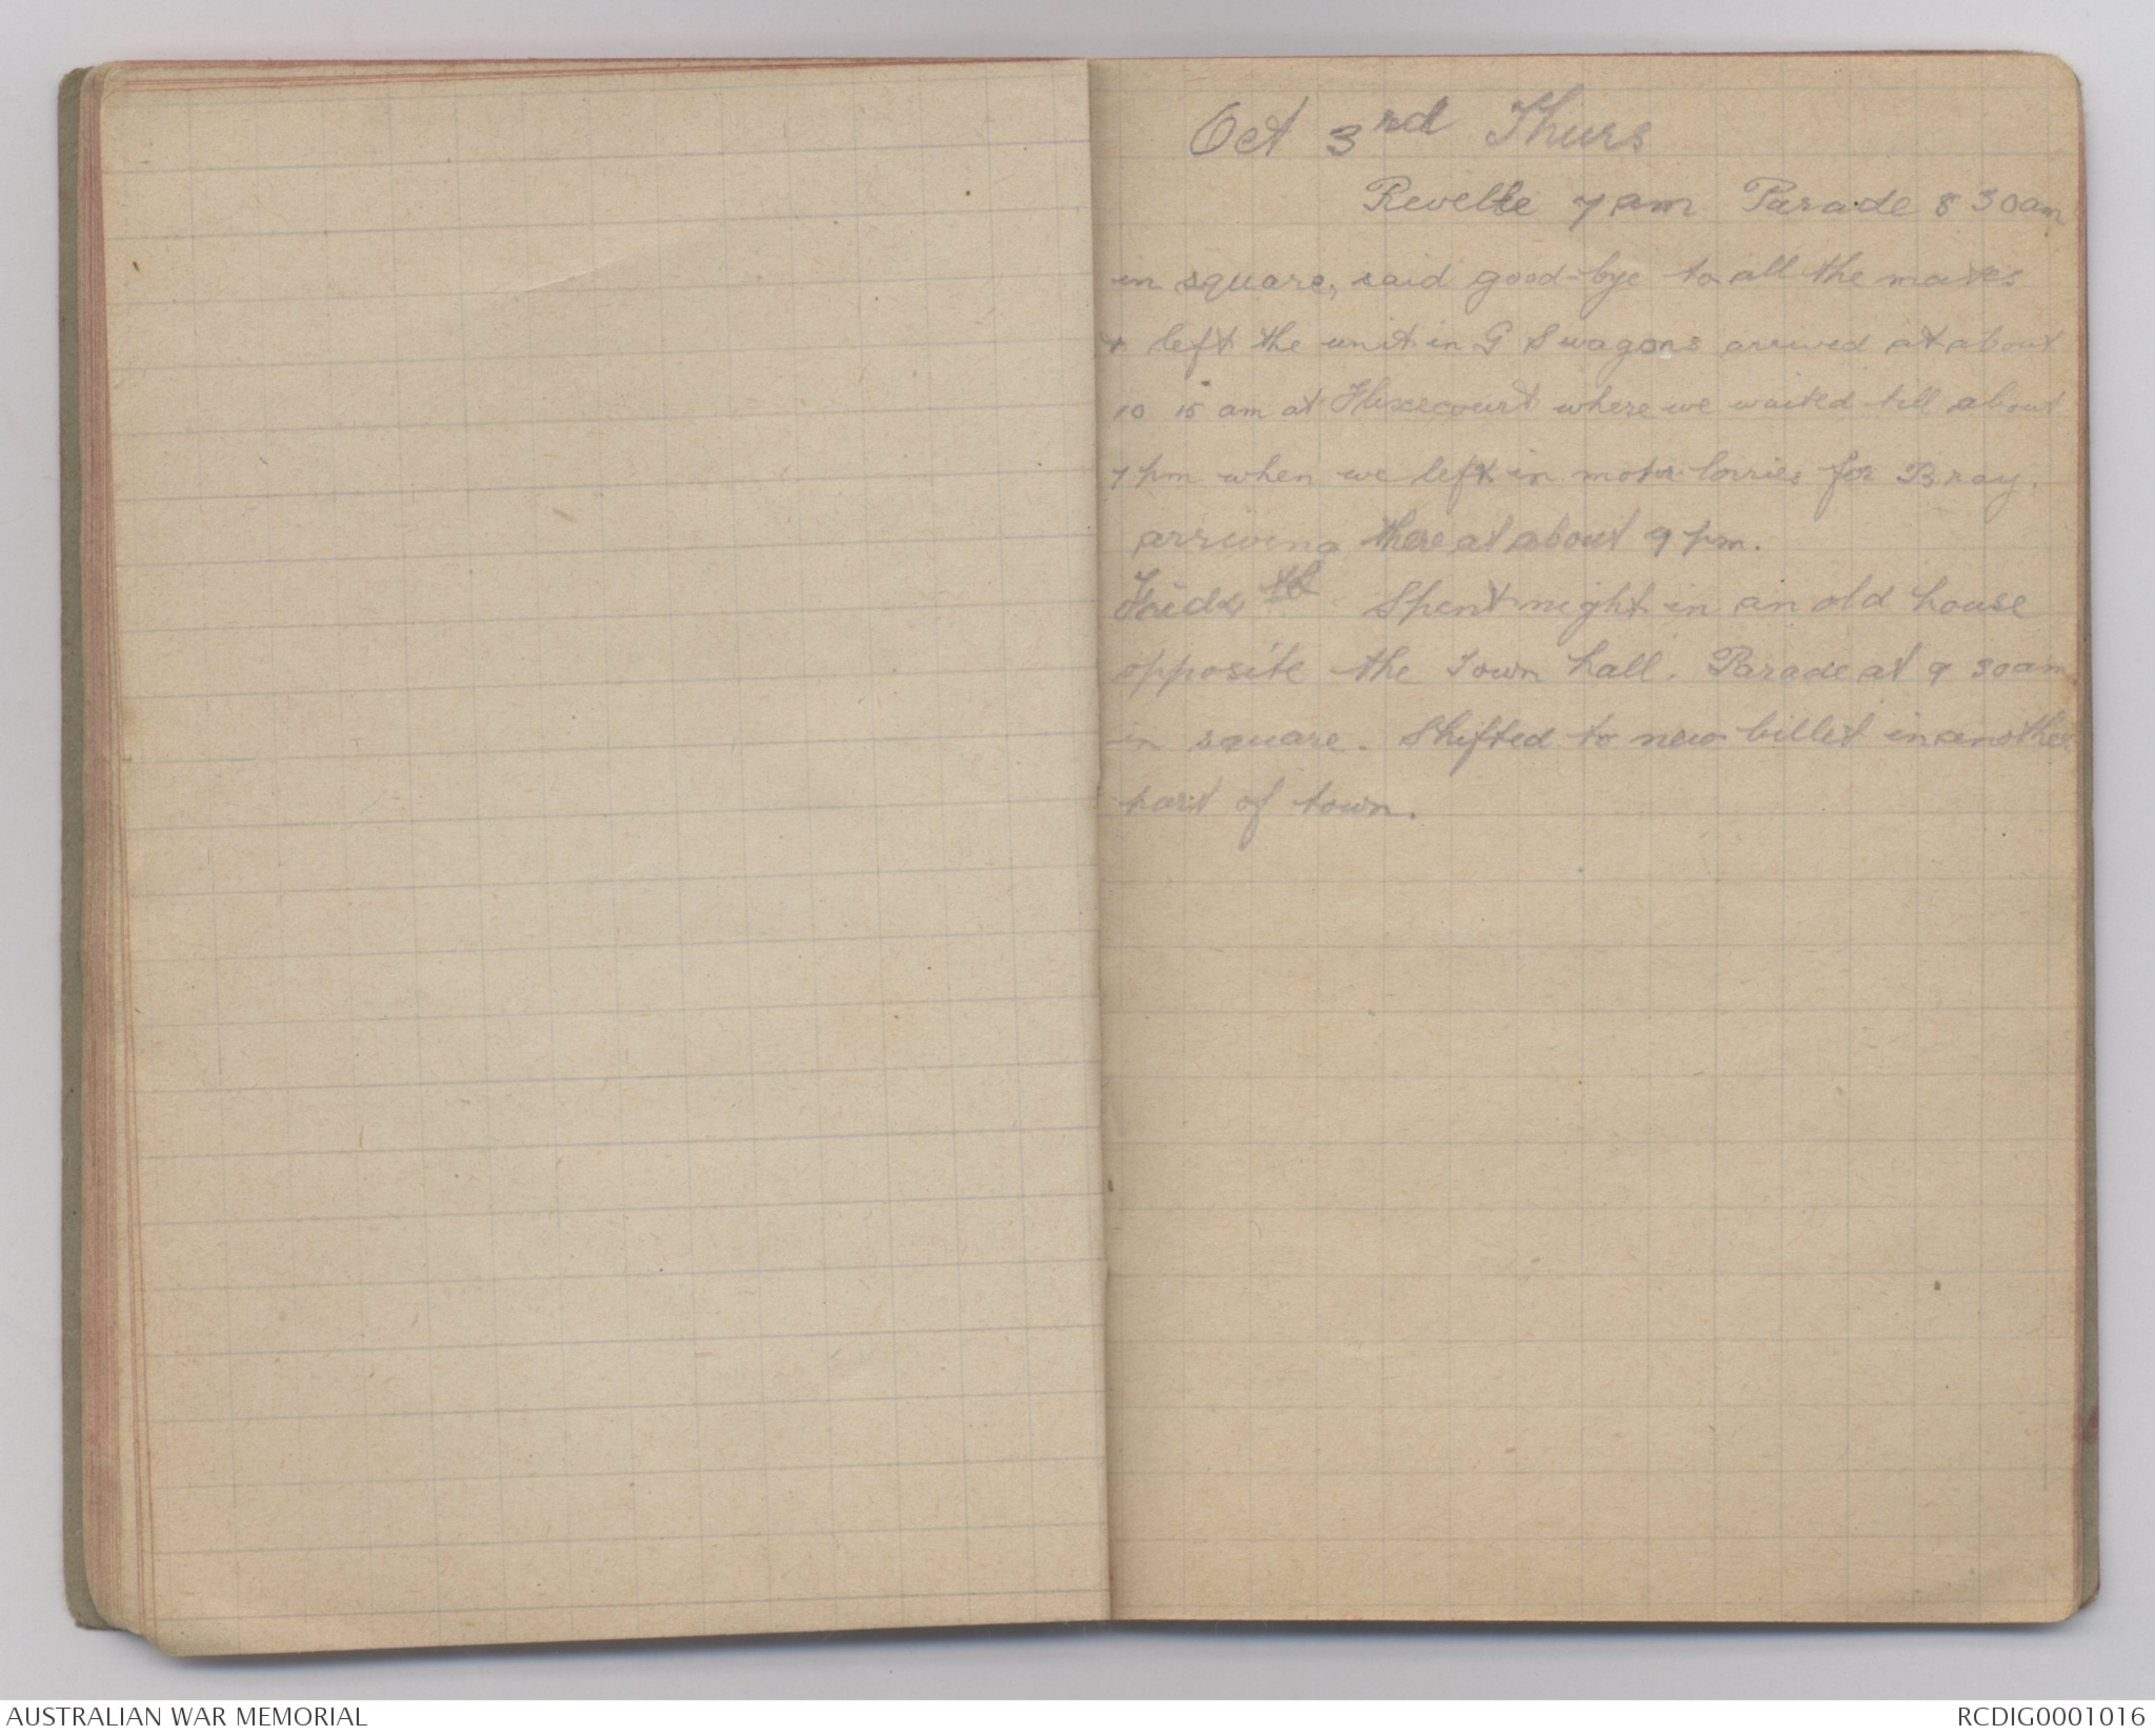 Oct 3rd Thurs
Revelle 7 am Parade 8 30 am
in square, said good-bye to all the mates
+ left the unit in G S wagons arrived at about
10 15 am at Flixecourt where we waited till about
7 pm when we left in motor lorries for Bray.
arriving there at about 9 pm.
Frid 4th Spent night in an old house
opposite the Town hall. Parade at 9 30 am
in square. Shifted to new billet in another
part of town.
AUSTRALIAN WAR MEMORIAL
RCDIG0001016